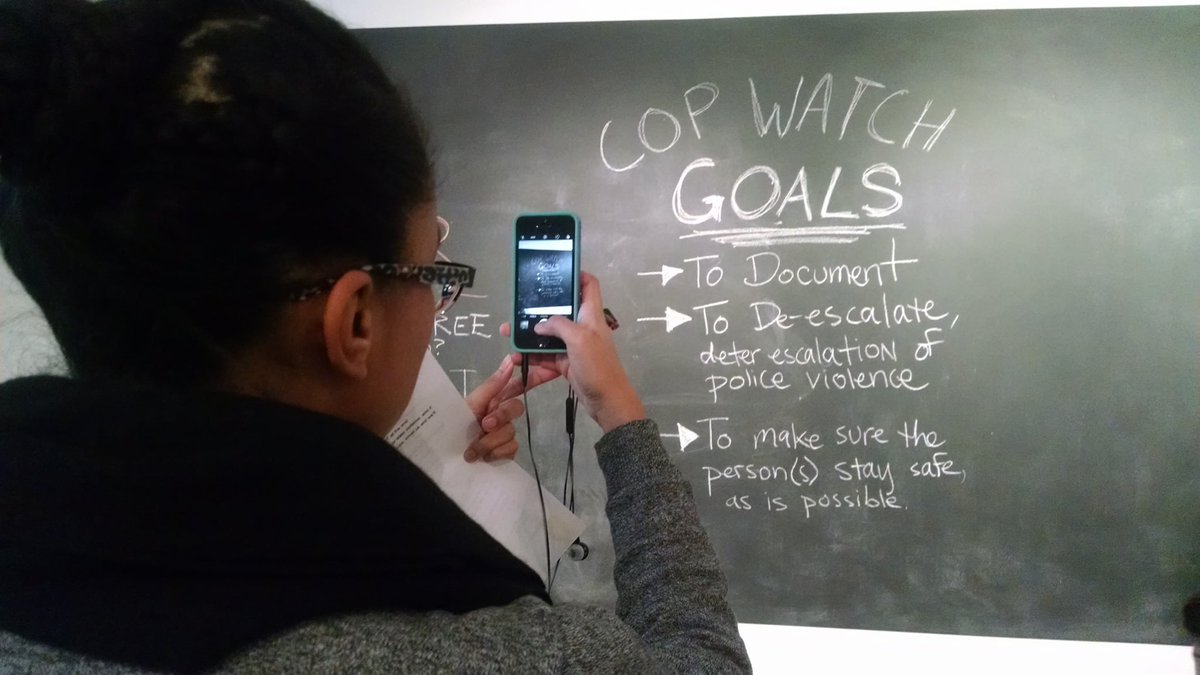 COP WATCH
GOALS
To Document
To De-escalate,
deter escalation of
police violence
To make sure the
person(s) stay safe,
as is possible.
REE
?
I